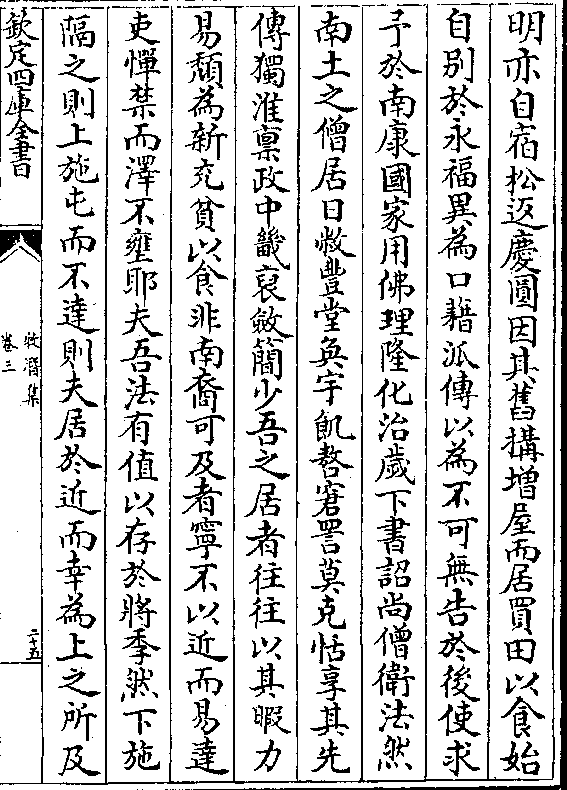 明亦自宿松返慶圓因其舊搆增屋而居買田以食始
自别於永福異為口藉派傳以為不可無告於後使求
予於南康國家用佛理隆化治歲下書詔尚僧衛法然
南土之僧居日敝豐堂奐宇飢嗸窘詈莫克恬享其先
傳獨淮稟政中畿裒斂簡少吾之居者往往以其暇力
易頽為新充貧以食非南裔可及者寧不以近而易達
吏憚禁而澤不壅耶夫吾法有值以存於將季然下施
隔之則上施屯而不達則夫居於近而幸為上之所及
欽定四庫全書
牧潛集
卷三
二十五